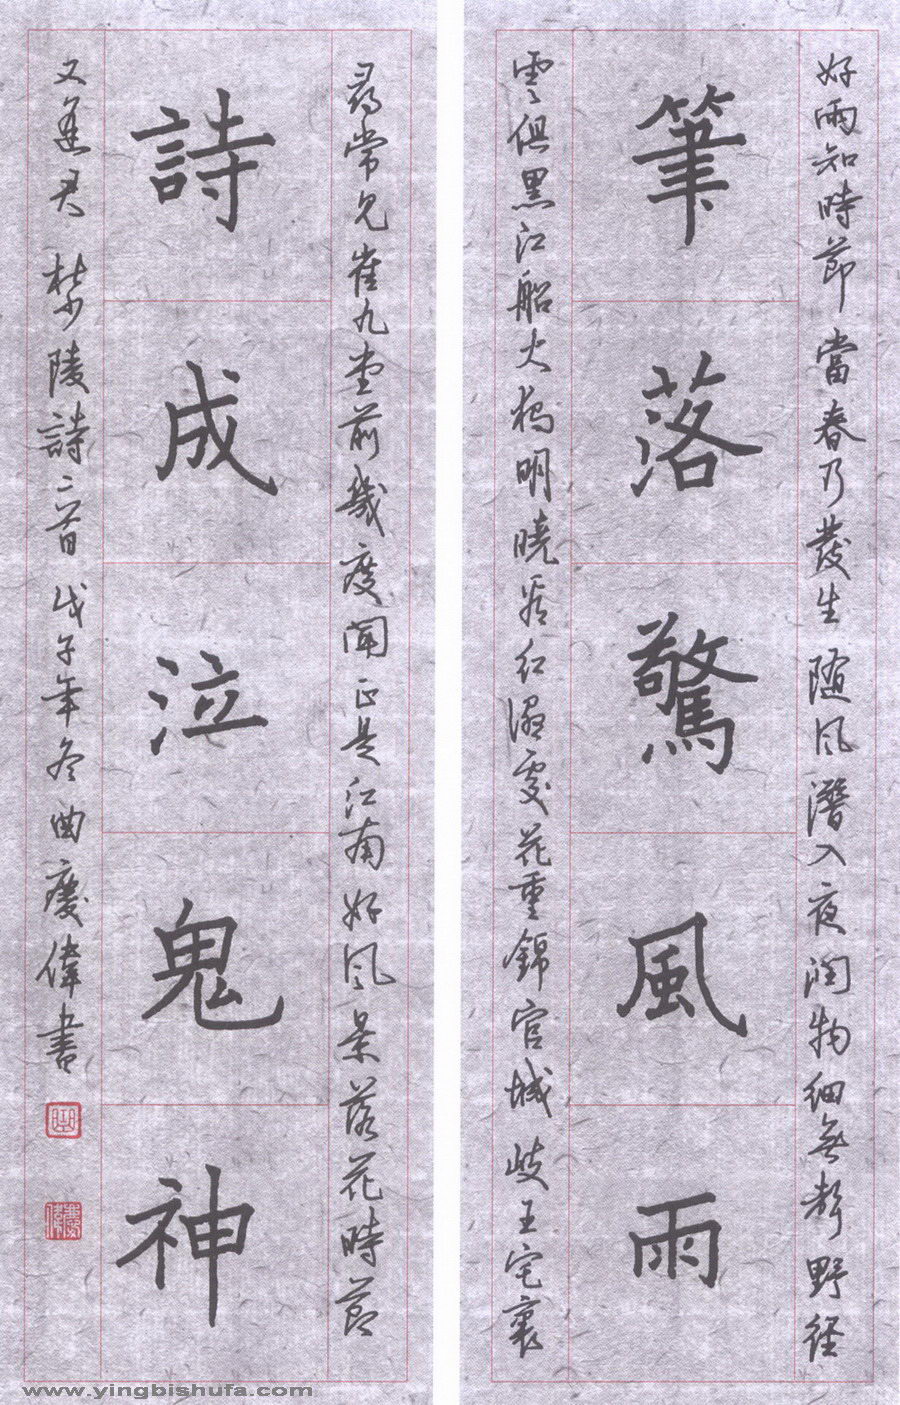 好雨知時節當春乃發生隨風潛入夜潤物細無聲野徑
筆落驚風雨
雲俱黑江船火獨明曉看紅濕處花重錦官城岐王宅裏
尋常見崔九堂前幾度聞正是江南好風景落花時節
詩成泣鬼神
又逢君 杜少陵詩二首戊子年冬曲慶偉書
www.yingbishufa.com